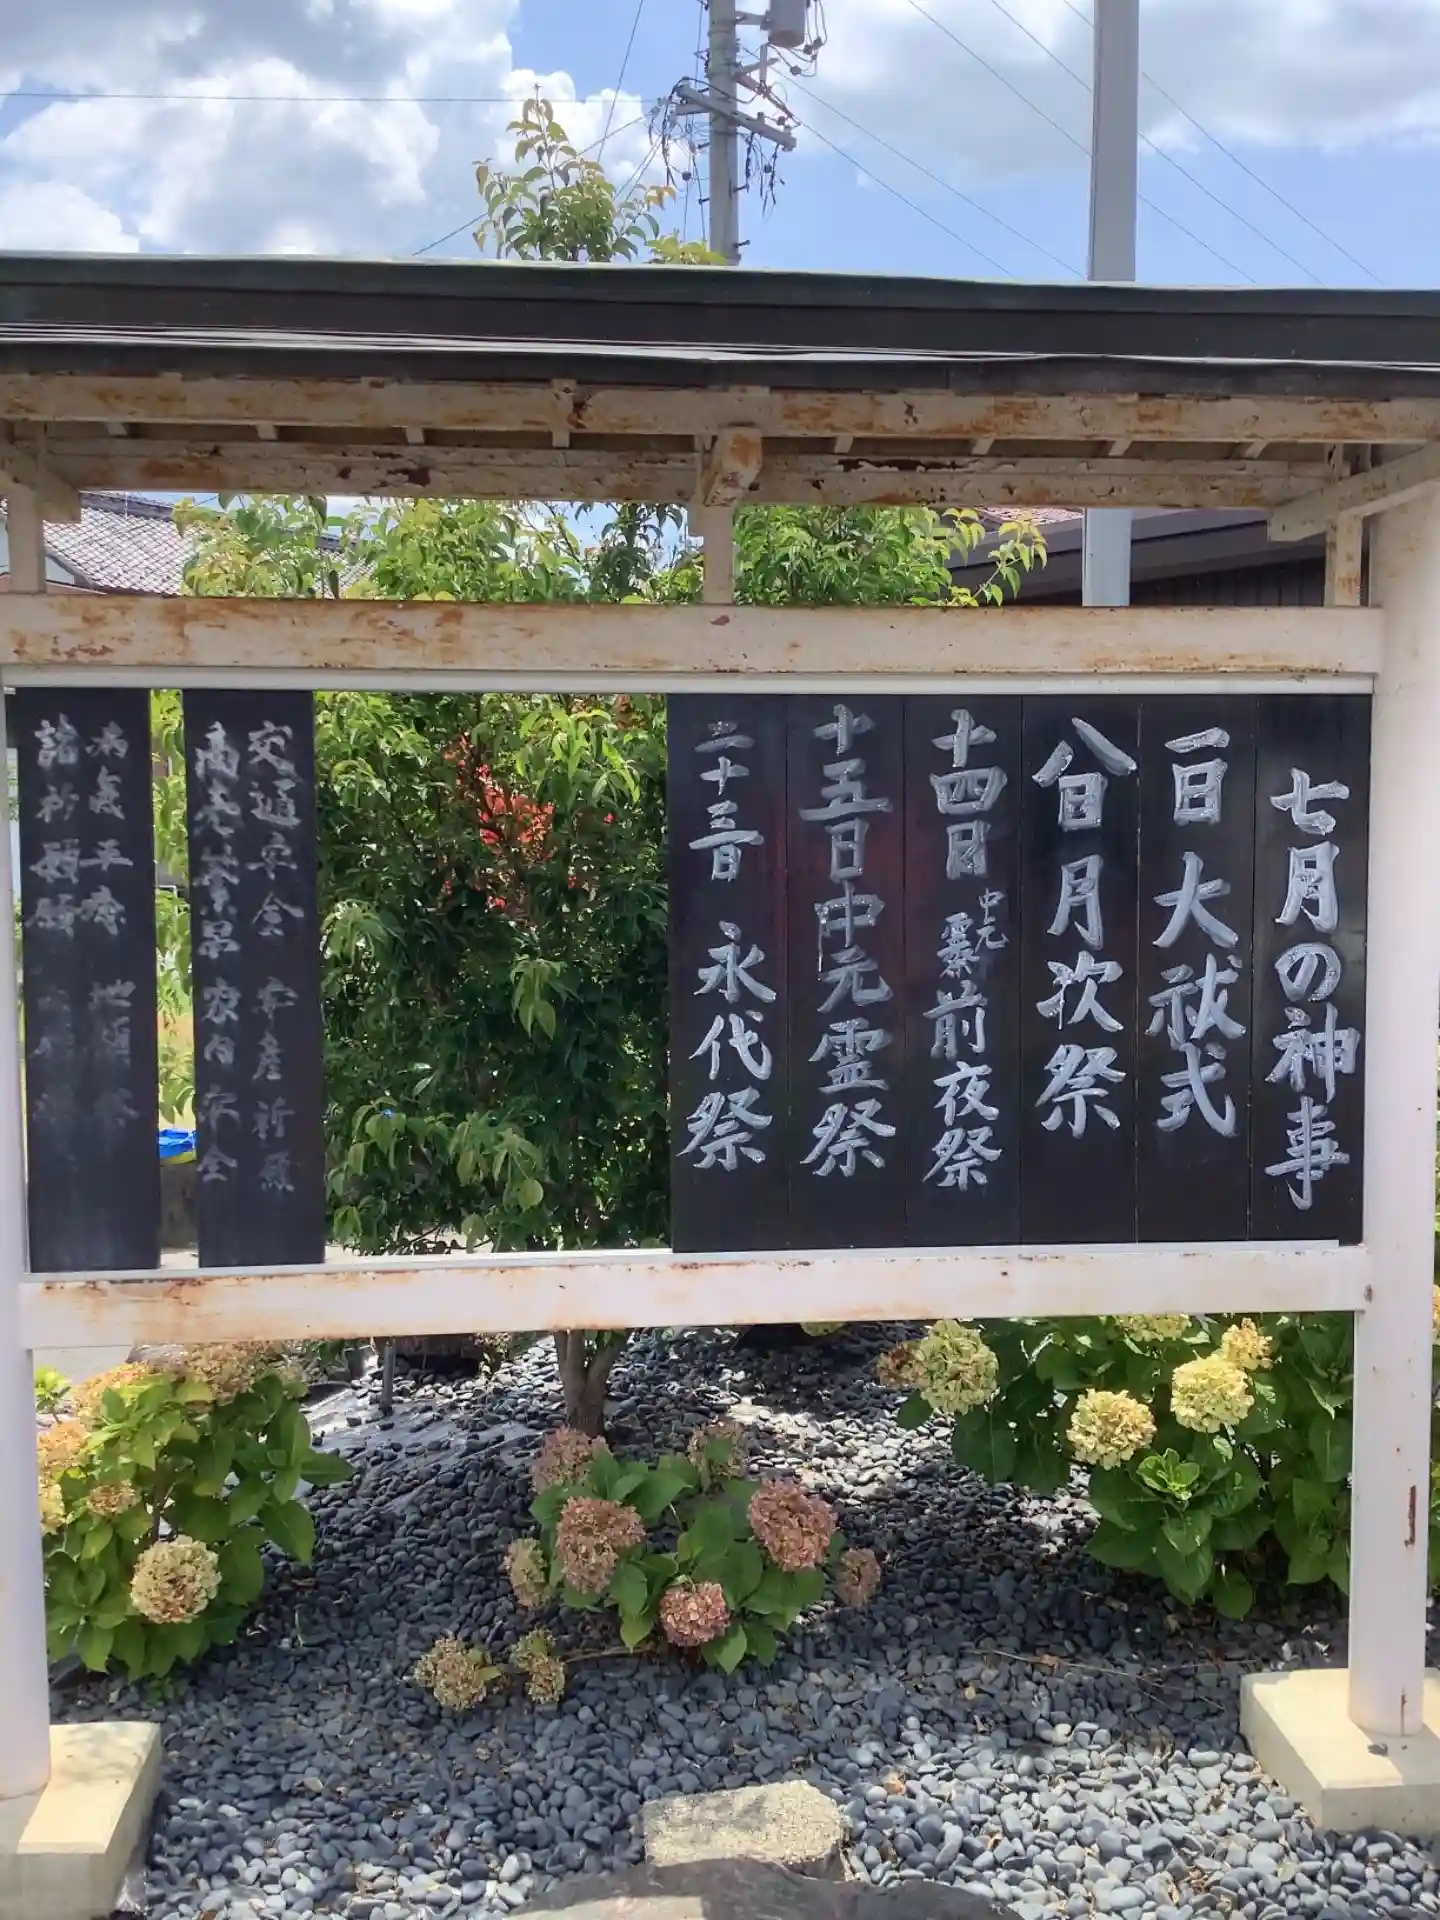 七月の神事
一日 大祓式
八日 月次祭
十四日 中元霊祭前夜祭
十五日 中元霊祭
二十三日 永代祭
交通安全 安産祈願
商売繁昌 家内安全
病気平癒 地鎮祭
諸祈願